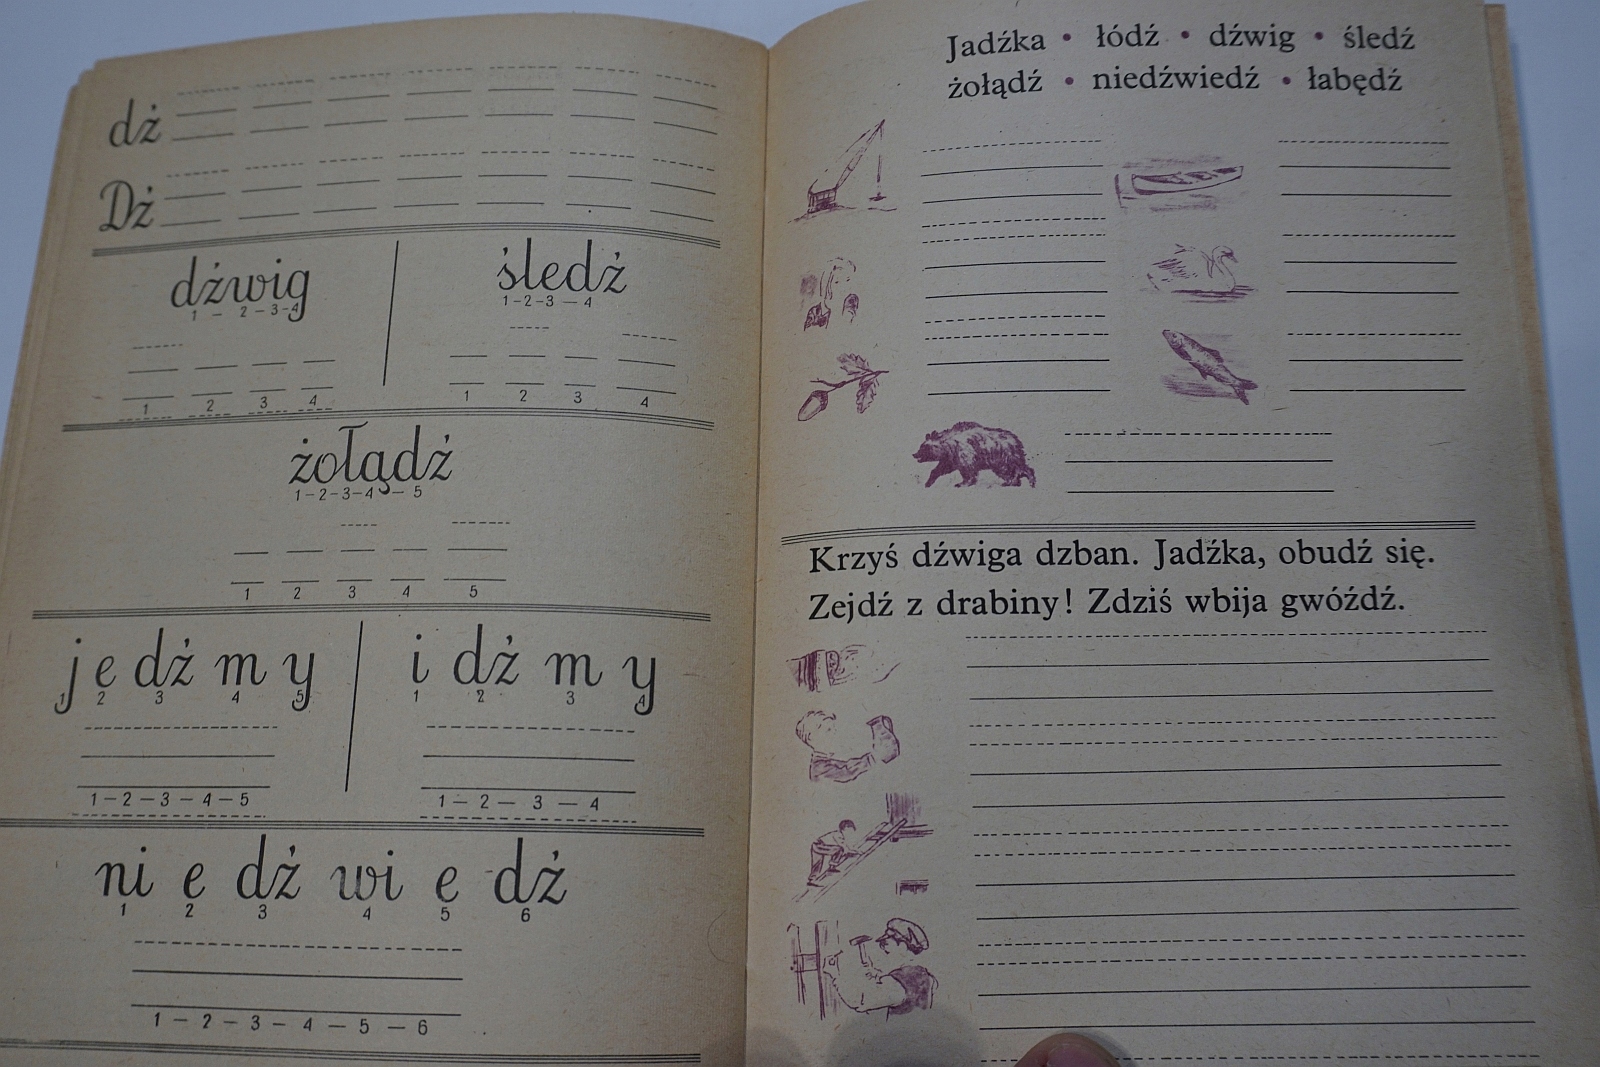 dź
Dź
dźwig
1 - 2 - 3 - 4
1 2 3 4
śledź
1 - 2 - 3 - 4
1 2 3 4
żołądź
1 - 2 - 3 - 4 - 5
1 2 3 4 5
j e dź m y
1 2 3 4 5
1 - 2 - 3 - 4 - 5
i dź m y
1 2 3 4
1 - 2 - 3 - 4
ni e dź wi e dź
1 2 3 4 5 6
1 - 2 - 3 - 4 - 5 - 6
Jadźka • łódź • dźwig • śledź
żołądź • niedźwiedź • łabędź
Krzyś dźwiga dzban. Jadźka, obudź się.
Zejdź z drabiny! Zdziś wbija gwóźdź.